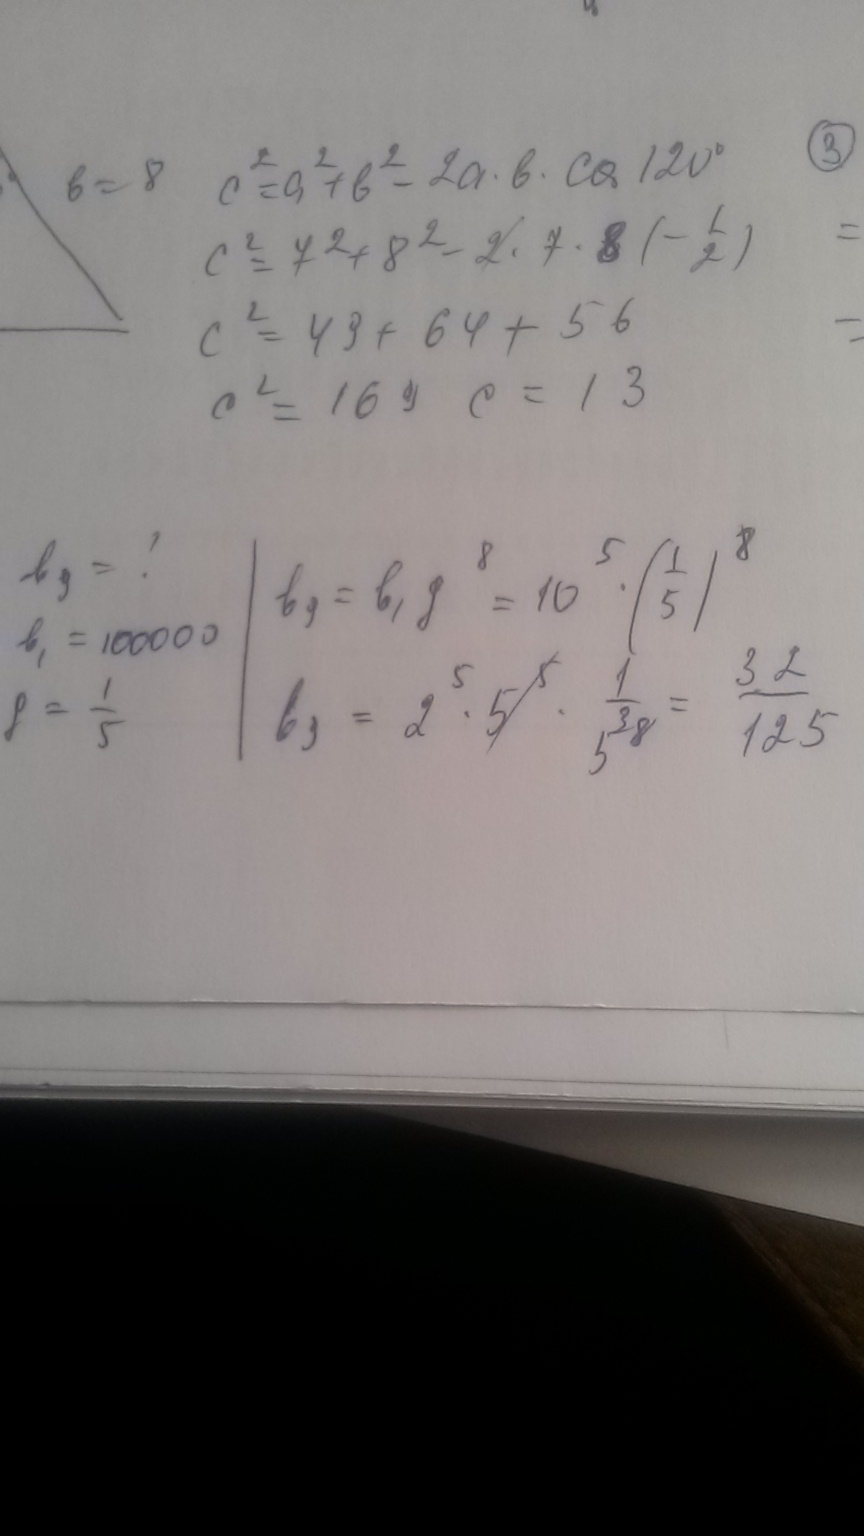 в = 8
c² = a² + в² - 2a · в · cos 120°
③
c² = 7² + 8² - 2 · 7 · 8 (-1/2)
=
c² = 49 + 64 + 56
=
c² = 169 c = 13
b₉ = ?
b₁ = 100000
q = 1/5
b₉ = b₁ q⁸ = 10⁵ · (1/5)⁸
b₉ = 2⁵ · 5⁵ · 1/5³⁸ = 32/125